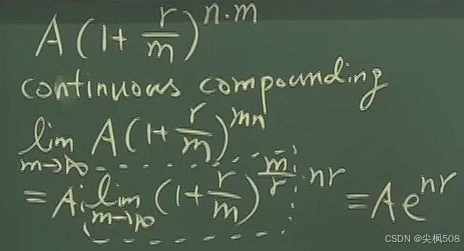 A(1+r/m)^{n·m}
continuous compounding
lim_{m→∞} A(1+r/m)^{mn}
=A lim_{m→∞} (1+r/m)^{m/r·nr} =Ae^{nr}
CSDN @尖枫508